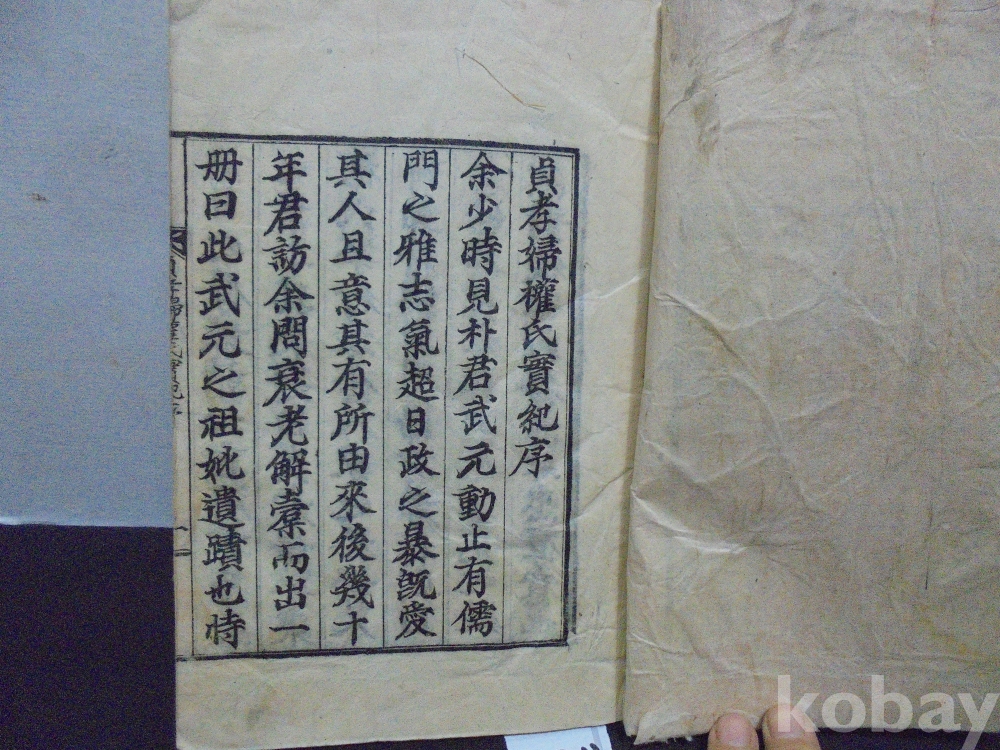 貞孝婦權氏實紀序
余少時見朴君武元動止有儒
門之雅志氣超日政之暴旣愛
其人且意其有所由來後幾十
年君訪余問衰老解橐而出一
册曰此武元之祖妣遺蹟也時
貞孝婦權氏實紀序
一
kobay